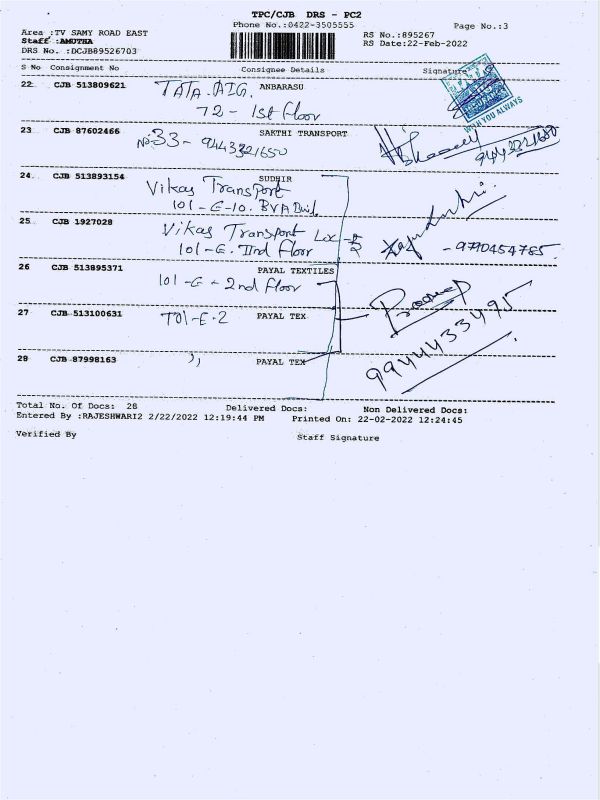 TPC/CJB DRS - PC2
Phone No.:0422-3505555
Page No.:3
Area :TV SAMY ROAD EAST
Staff :AMUTHA
DRS No. :DCJB89526703
RS No.:895267
RS Date:22-Feb-2022
S No Consignment No Consignee Details Signature
22 CJB 513809621 TATA AIG. ANBARASU
72 - 1st floor
WISH YOU ALWAYS
23 CJB 87602466 SAKTHI TRANSPORT
No:33 - 9443321650
9443321650
24 CJB 513893154 SUDHIR
Vikas Transport
101 - E-10. BVA
25 CJB 1927028 Vikas Transport
101 - E. IInd floor - 9790454785.
26 CJB 513895371 PAYAL TEXTILES
101 - E - 2nd floor
27 CJB 513100631 101-E-2 PAYAL TEX
9944433495
28 CJB 87998163 ,, PAYAL TEX
Total No. Of Docs: 28 Delivered Docs: Non Delivered Docs:
Entered By :RAJESHWARI2 2/22/2022 12:19:44 PM Printed On: 22-02-2022 12:24:45
Verified By Staff Signature